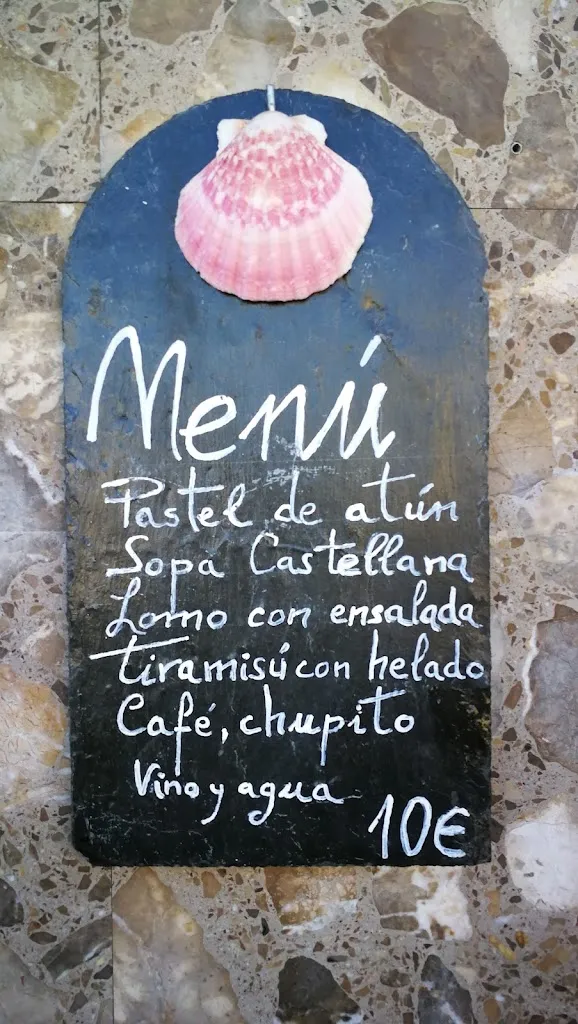 Menú
Pastel de atún
Sopa Castellana
Lomo con ensalada
Tiramisú con helado
Café, chupito
Vino y agua
10€